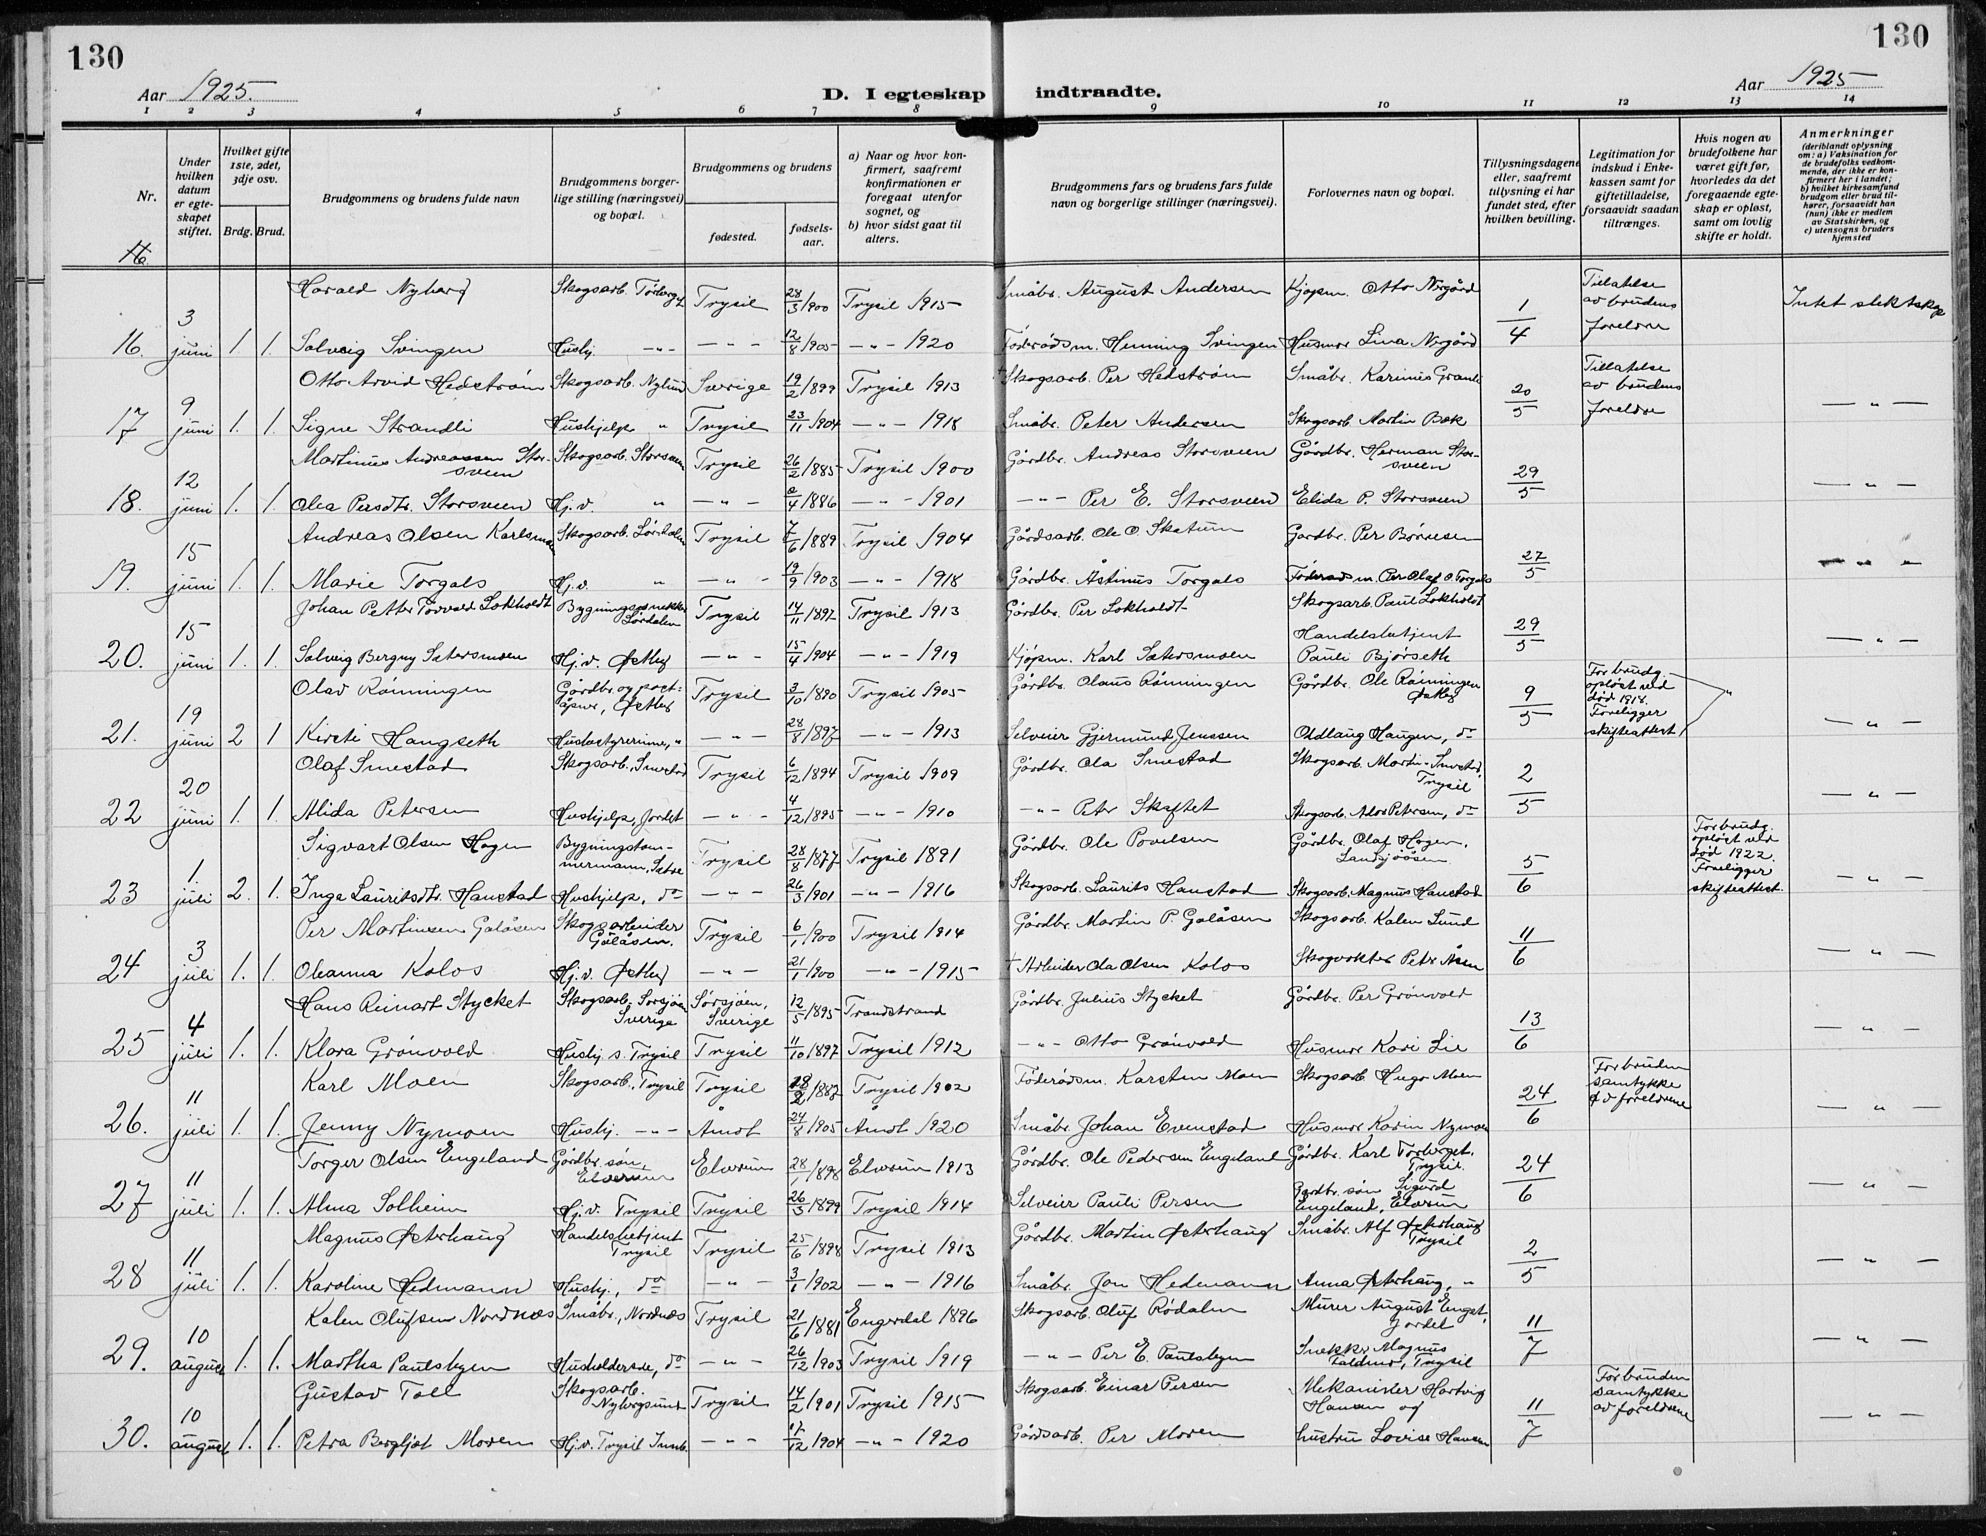 130
130
Aar 1925.
D. I egteskap indtraadte.
Aar 1925
1 2 3 4 5 6 7 8 9 10 11 12 13 14
Nr.
Under hvilken datum er egteskapet stiftet.
Hvilket gifte 1ste, 2det, 3dje osv.
Brdg. Brud.
Brudgommens og brudens fulde navn
Brudgommens borgerlige stilling (næringsvei) og bopæl.
Brudgommens og brudens
fødested.
fødselsaar.
a) Naar og hvor konfirmert, saafremt konfirmationen er foregaat utenfor sognet, og
b) hvor sidst gaat til alters.
Brudgommens fars og brudens fars fulde navn og borgerlige stillinger (næringsvei).
Forlovernes navn og bopæl.
Tillysningsdagene eller, saafremt tillysning ei har fundet sted, efter hvilken bevilling.
Legitimation for indskud i Enkekassen samt for giftetilladelse, forsaavidt saadan tiltrænges.
Hvis nogen av brudefolkene har været gift før, hvorledes da det foregaaende egteskap er opløst, samt om lovlig skifte er holdt.
Anmerkninger
(deriblandt oplysning om: a) Vaksination for de brudefolks vedkommende, der ikke er konfirmert her i landet; b) hvilket kirkesamfund brudgom eller brud tilhører, forsaavidt han (hun) ikke er medlem av Statskirken, og c) utensogns bruders hjemsted
Harald Nyberg Skogsarb. Trysil 28/3 1900 Trysil 1915 Småbr. August Andersen Kjøpm. Otto Nygård 1/4 Tillatelse av brudens foreldre Intet slektskap
16. 3 juni 1. 1. Solveig Svingen Hushj. -"- -"- 12/8 1905 -"- 1920 Føderådsm. Henning Svingen Husmor Lina Nygård
Otto Arvid Hedstrøm Skogsarb. Nylund Sverige 19/2 1899 Trysil 1913 Skogsarb. Per Hedstrøm Småbr. Karinius Granli 20/5 Tillatelse av brudens foreldre
17 9 juni 1. 1. Signe Strandli Hushjelp " Trysil 23/11 1904 -"- 1918 Småbr. Peter Andersen Skogsarb Martin Bæk -"-
Martinus Andreassen Storsveen Skogsarb. Storsveen Trysil 26/2 1885 Trysil 1900 Gårdbr. Andreas Storsveen Gårdbr. Herman Storsveen 29/5
18. 12 juni 1. 1. Olea Persdtr. Storsveen Hj.v. " -"- /4 1886 -"- 1901 -"- Per E. Storsveen Elida P. Storsveen -"-
Andreas Olsen Karlsmoen Skogsarb. Trysil 7/6 1889 Trysil 1904 Gårdsarb. Ole O. Skatum Gardbr. Per Børresen 27/5
19. 15 juni 1. 1. Marie Torgals Hj.v. " -"- 19/9 1903 -"- 1918 Gårdbr. Åstinus Torgals Føderådsm. Per Olaf O. Torgals -"-
Johan Petter Torvald Lokholdt Bygningssnekker Lørdalen Trysil 14/11 1897 Trysil 1913 Gårdbr. Per Lokholdt Skogsarb. Paul Lokholdt 29/5
20. 15 juni 1. 1. Solveig Bergny Sætersmoen Hj.v. Østby -"- 15/4 1904 -"- 1919 Kjøpm. Karl Sætersmoen Handelsbetjent Pauli Bjørseth -"-
Olav Rønningen Gårdbr. og poståpner, Østby Trysil 3/10 1890 Trysil 1905 Gårdbr. Olaus Rønningen Gårdbr. Ole Rønningen Østby 9/5 For brudg. opløst ved død 1918. Foreligger skifteattest
21. 19 juni 2 1 Kirsti Haugseth Husbestyrerinne, " -"- 28/8 1897 -"- 1913 Selveier Gjermund Jenssen Oddlaug Haugen, do -"-
Olaf Smestad Skogsarb., Smestad Trysil 6/12 1894 Trysil 1909 Gårdbr. Ola Smestad Skogsarb. Martin Smestad, Trysil 2/5
22 20 juni 1. 1. Alida Petersen Hushjelp, Jordet -"- 4/12 1895 -"- 1910 -"- Petr Skaftet Skogsarb. Petersen, do -"-
Sigvart Olsen Hagen Bygningstømmermann, Sætre Trysil 28/8 1877 Trysil 1891 Gårdbr. Ole Povelsen Gårdbr. Olaf Hagen, 5/6 For brudg. opløst ved død 1922. Foreligger skifteattest.
23 1. juli 2. 1. Inga Lauritsdtr. Hanestad Hushjelp, do -"- 26/3 1901 -"- 1916 Skogsarb. Laurits Hanestad Skogsarb. Magnus Hanestad -"-
Per Martinsen Galåsen Skogsarbeider Galåsen. Trysil 6/1 1900 Trysil 1914 Gårdbr. Martin P. Galåsen Skogsarb. Kalen Lund 11/6
24 3 juli 1. 1. Oleanna Kolos Hj.v. Østby -"- 21/1 1900 -"- 1915 † Arbeider Ola Olsen Kolos Skogvokter Peter Åsen -"-
Hans Reinart Stycket Skogsarb., Sørsjøen Sverige Sørsjøen, Sverige 12/5 1895 Trandstrand Gårdbr. Julius Stycket Gårdbr. Per Grønvold 13/6
25 4 juli 1. 1. Klara Grønvold Hushj. s. Trysil Trysil 11/10 1897 Trysil 1912 -"- Otto Grønvold Husmor Kari Lie -"-
Karl Moen Skogsarb., Trysil Trysil 18/2 1887 Trysil 1902 Føderådsm. Karsten Moen Skogsarb. Hugo Moen 24/6 For bruden samtykke av foreldrene
26. 11 juli 1. 1. Jenny Nymoen Hushj. -"- Åmot 24/8 1905 Åmot 1920 Småbr. Johan Evenstad Husmor Karin Nymoen -"-
Torger Olsen Engeland Gårdbr. søn, Elverum Elverum 28/1 1898 Elverum 1913 Gårdbr. Ole Pedersen Engeland Gårdbr. Karl Torberget, Trysil. 24/6
27 11 juli 1. 1. Alma Solheim Hj.v. Trysil Trysil 26/3 1899 Trysil 1914 Selveier Pauli Persen Gardbr. søn Sigurd Engeland, Elverum -"-
Magnus Østerhaug Handelsbetjent Trysil Trysil 25/6 1898 Trysil 1913 Gårdbr. Martin Østerhaug Småbr. Alf Østerhaug Trysil 2/5
28 11 juli 1. 1. Karoline Hedmann Hushj., do -"- 3/1 1902 -"- 1916 Småbr. Jon Hedmann Anna Østerhaug, " -"-
Kalen Olufsen Nordnæs Småbr., Nordnæs Trysil 21/6 1881 Engerdal 1896 Skogsarb. Oluf Rødalen Murer August Enget, Jordet 11/7
29. 10 august 1. 1. Martha Paulsbyen Husholderske, do -"- 26/12 1903 Trysil 1919 -"- Per E. Paulsbyen Snekker Magnus, Trysil -"-
Gustav Toll Skogsarb. Nybergsund Trysil 14/2 1901 Trysil 1915 Skogsarb. Einar Persen Mekaniker Hartvig Hansen og 11/7 For bruden samtykke av foreldrene
30. 10 august 1. 1. Petra Bergljot Moren Hj.v. Trysil Innb. -"- 17/12 1904 -"- 1920 Gårdsarb. Per Moren hustru Lovise Hansen -"-